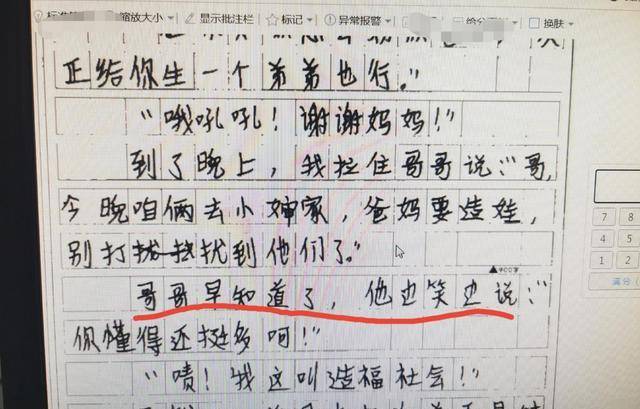 缩放大小 显示批注栏 标记 异常报警 换肤
正给你生一个弟弟也行。”
“哦吼吼！谢谢妈妈！”
到了晚上，我拉住哥哥说：“哥，
今晚咱俩去小婶家，爸妈要造娃，
别打扰找扰到他们了。”
▲900字
哥哥早知道了，他边笑边说：“
你懂得还挺多呵！”
“啧！我这叫造福社会！”
7 8
4 5
1 2
满分